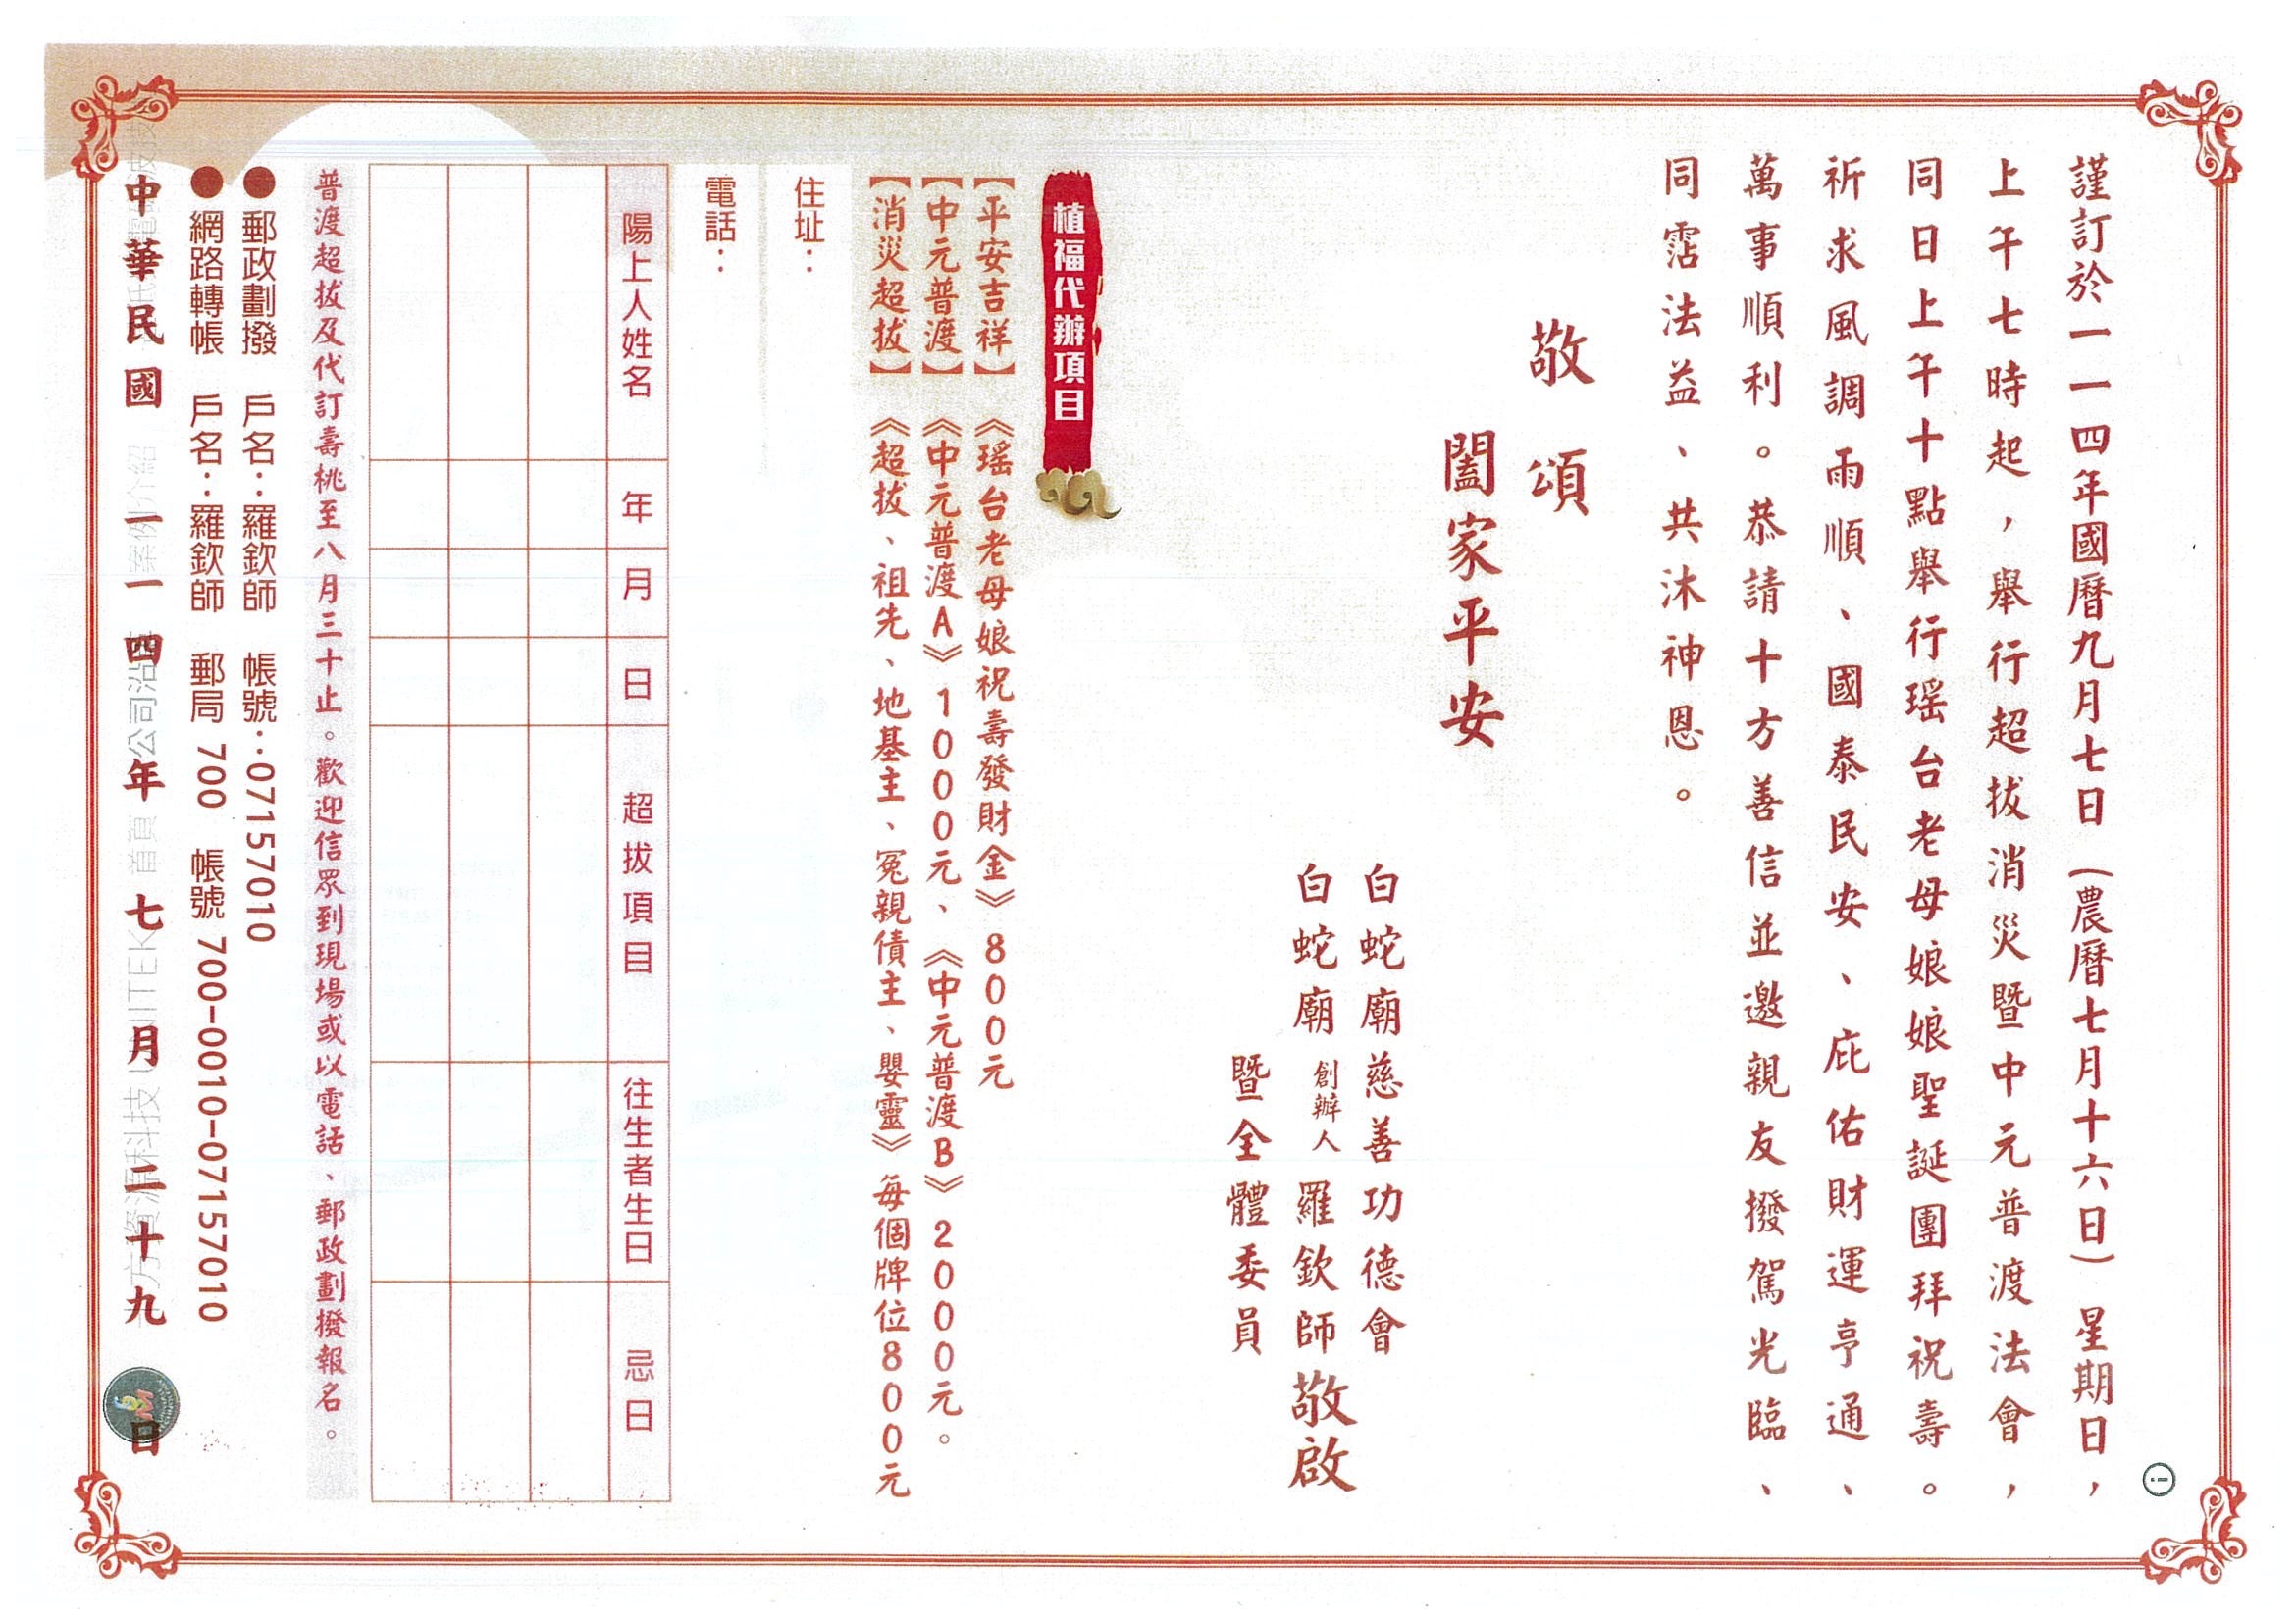 謹訂於一一四年國曆九月七日(農曆七月十六日)星期日，
上午七時起，舉行超拔消災暨中元普渡法會，
同日上午十點舉行瑤台老母娘娘聖誕團拜祝壽。
祈求風調雨順、國泰民安、庇佑財運亨通、
萬事順利。恭請十方善信並邀親友撥駕光臨、
同霑法益、共沐神恩。
敬頌
闔家平安
白蛇廟慈善功德會
白蛇廟 創辦人 羅欽師 敬啟
暨全體委員
植福代辦項目
【平安吉祥】《瑤台老母娘祝壽發財金》800元
【中元普渡】《中元普渡A》1000元、《中元普渡B》2000元。
【消災超拔】《超拔、祖先、地基主、冤親債主、嬰靈》每個牌位800元
住址：
電話：
陽上人姓名 年 月 日 超拔項目 往生者生日 忌日
普渡超拔及代訂壽桃至八月三十止。歡迎信眾到現場或以電話、郵政劃撥報名。
●郵政劃撥 戶名：羅欽師 帳號：07157010
●網路轉帳 戶名：羅欽師 郵局 700 帳號 700-0010-07157010
中華民國一一四年七月二十九日